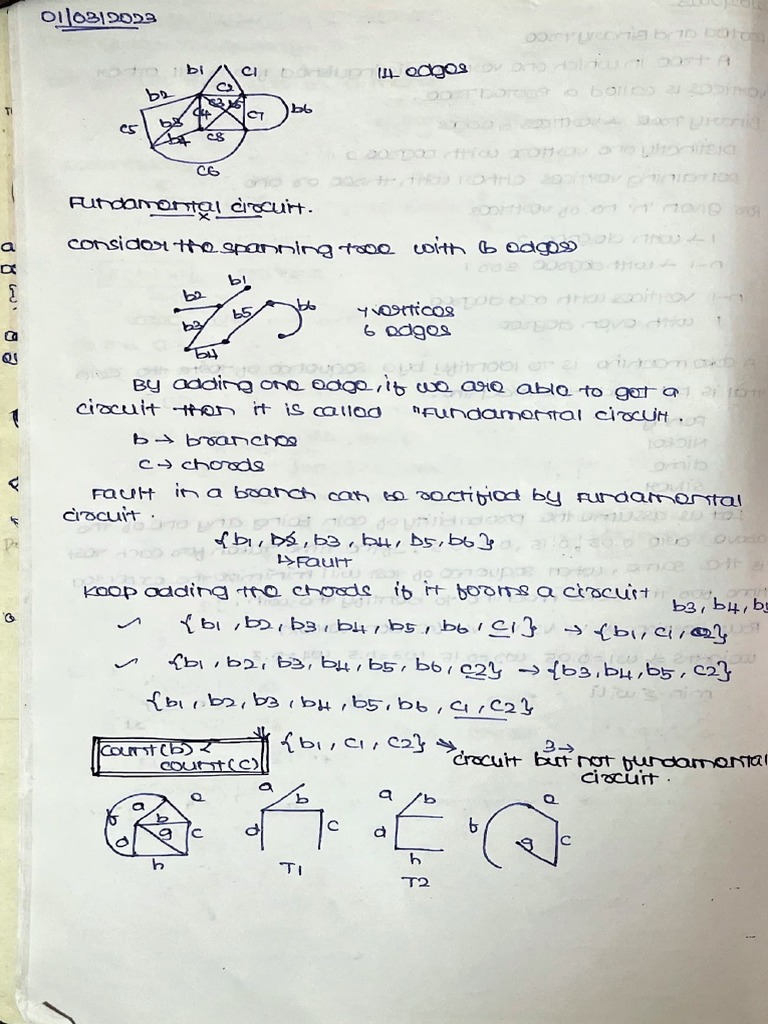 01/03/2023
b1 c1 14 edges
b2 c2
c3 b5 b6
c5 b3 c4 c7
b4 c8
c6
Fundamental circuit.
consider the spanning tree with (6 edges)
b1
b2
b5 b6 7 vertices
b3 6 edges
b4
By adding one edge, if we are able to get a
circuit then it is called "Fundamental circuit.
b → branches
c → chords
Fault in a branch can be rectified by Fundamental
circuit.
{b1, b2, b3, b4, b5, b6}
↳ Fault
Keep adding the chords if it forms a circuit
b3, b4, b5
✓ {b1, b2, b3, b4, b5, b6, c1} → {b1, c1,
✓ {b1, b2, b3, b4, b5, b6, c2} → {b3, b4, b5, c2}
{b1, b2, b3, b4, b5, b6, c1, c2}
count(b) < {b1, c1, c2} → circuit but not fundamental
count(c) circuit.
a e a a e
f b b b f
d g c d c d g c
h T1 h
T2